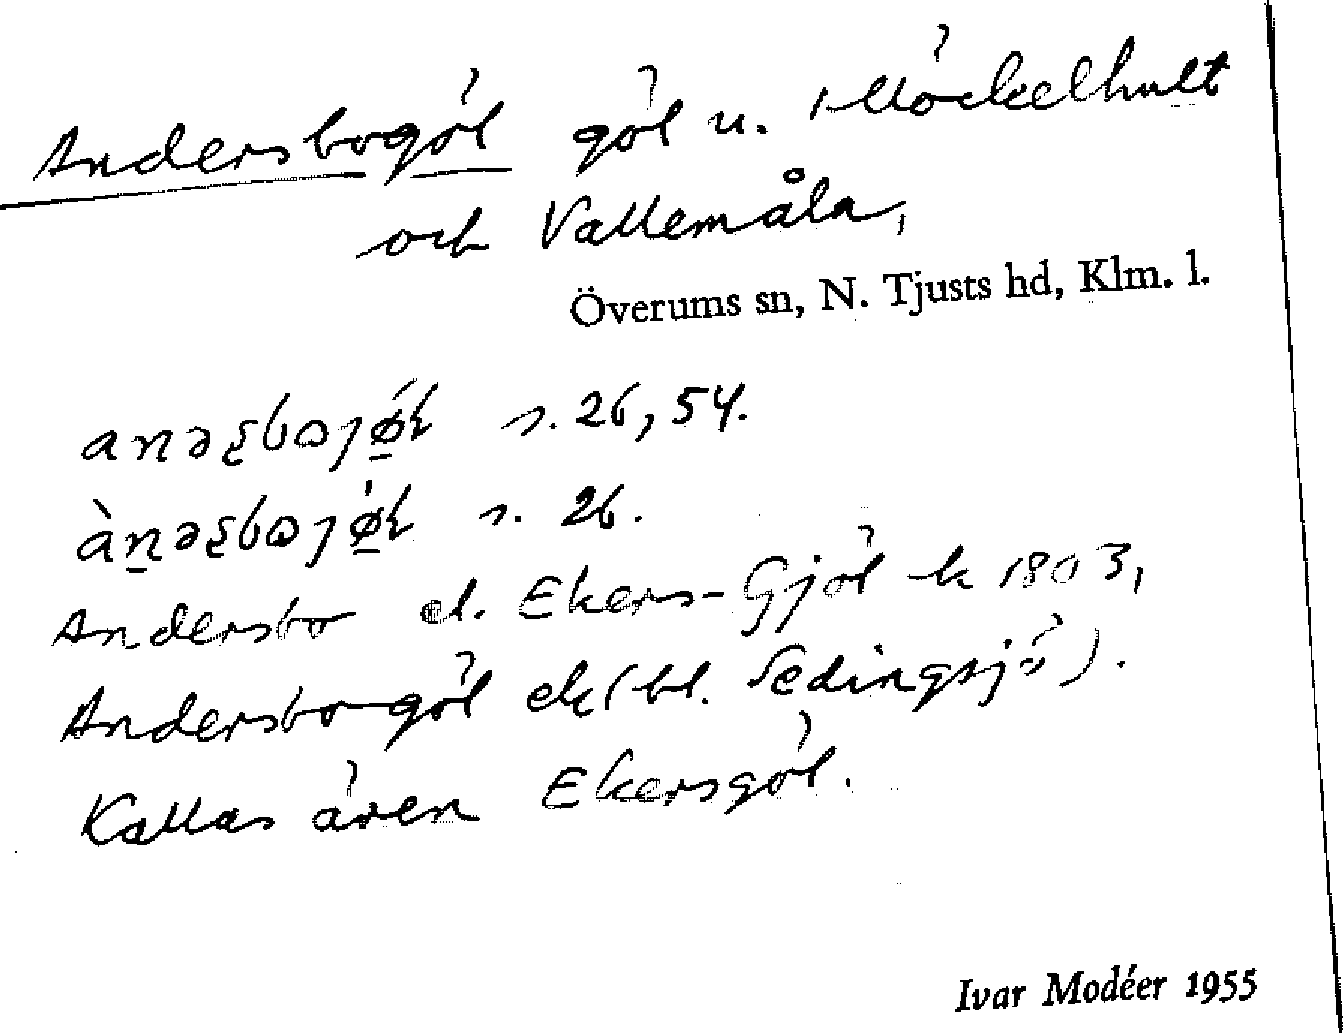 Andersbogöl göl u. Möckelhult
och Vallemåla,
Överums sn, N. Tjusts hd, Klm. l.
s. 26, 54.
s. 26.
Andersbo el. Ekers-Gjöl k 1803,
Andersbogöl ek (bl. Sedingsjö).
Kallas även Ekersgöl.
Ivar Modéer 1955